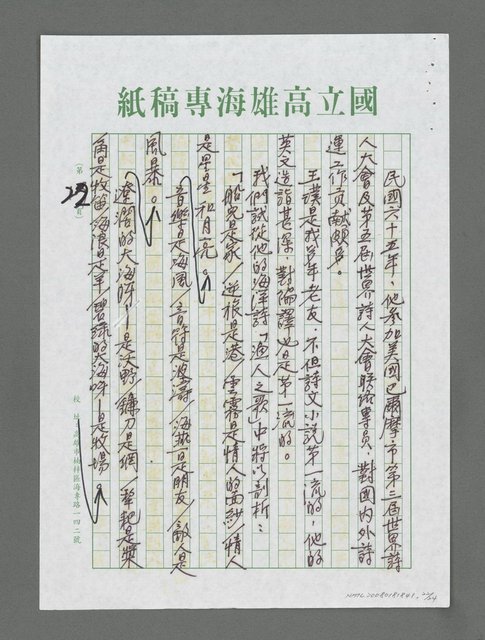 國立高雄海專稿紙
民國六十五年，他參加美國巴爾摩市第三屆世界詩
人大會及第五屆世界詩人大會聯絡專員，對國內外詩
運工作貢獻頗多。
王璞是我多年老友，不但詩文小說第一流的，他的
英文造詣甚深，對編譯也是第一流的。
我們試從他的海洋詩「漁人之歌」中將以剖析：
「船舟是家／逆旅是港／雲霧是情人的面紗／情人
是星星和月亮。」
「音樂是海風／音符是波濤／海燕是朋友／敵人是
風暴。」
「遼濶的大海呀！是沃野／鐮刀是網／犂耙是槳
「角是牧笛／海浪是羊／碧綠的大海呀！是牧場。」
（第27頁）
校址：高雄市楠梓區海專路一四二號
NMTL20080181841,22/24